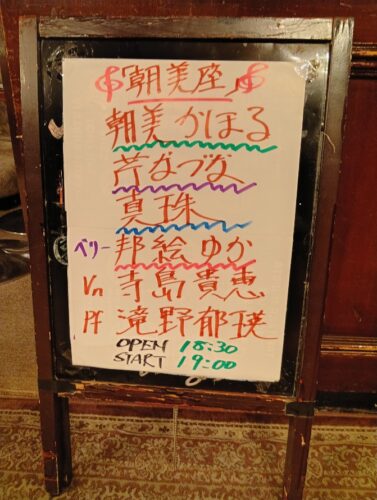 朝美座
朝美かほる
芹なづな
真珠
ベリー 邦絵ゆか
Vn 寺島貴恵
Pf 滝野郁瑛
OPEN 18:30
START 19:00